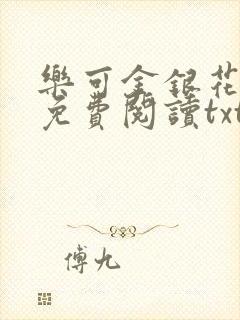 樂可金銀花
免費閱讀txt
傅九